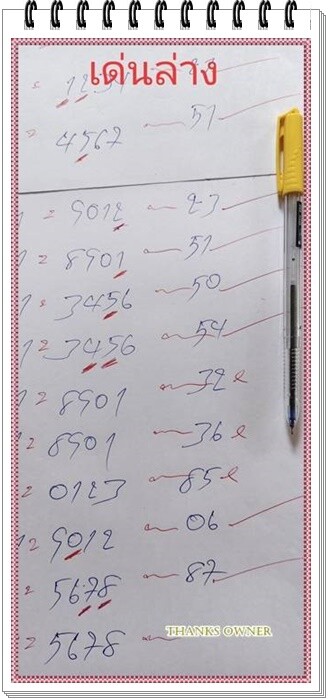 เด่นล่าง
4567 51
2 9012 23
2 8901 51
3456 50
2 3456 54
2 8901 32
2 8901 36
2 0123 85
2 9012 06
2 5678 87
2 5678
THANKS OWNER